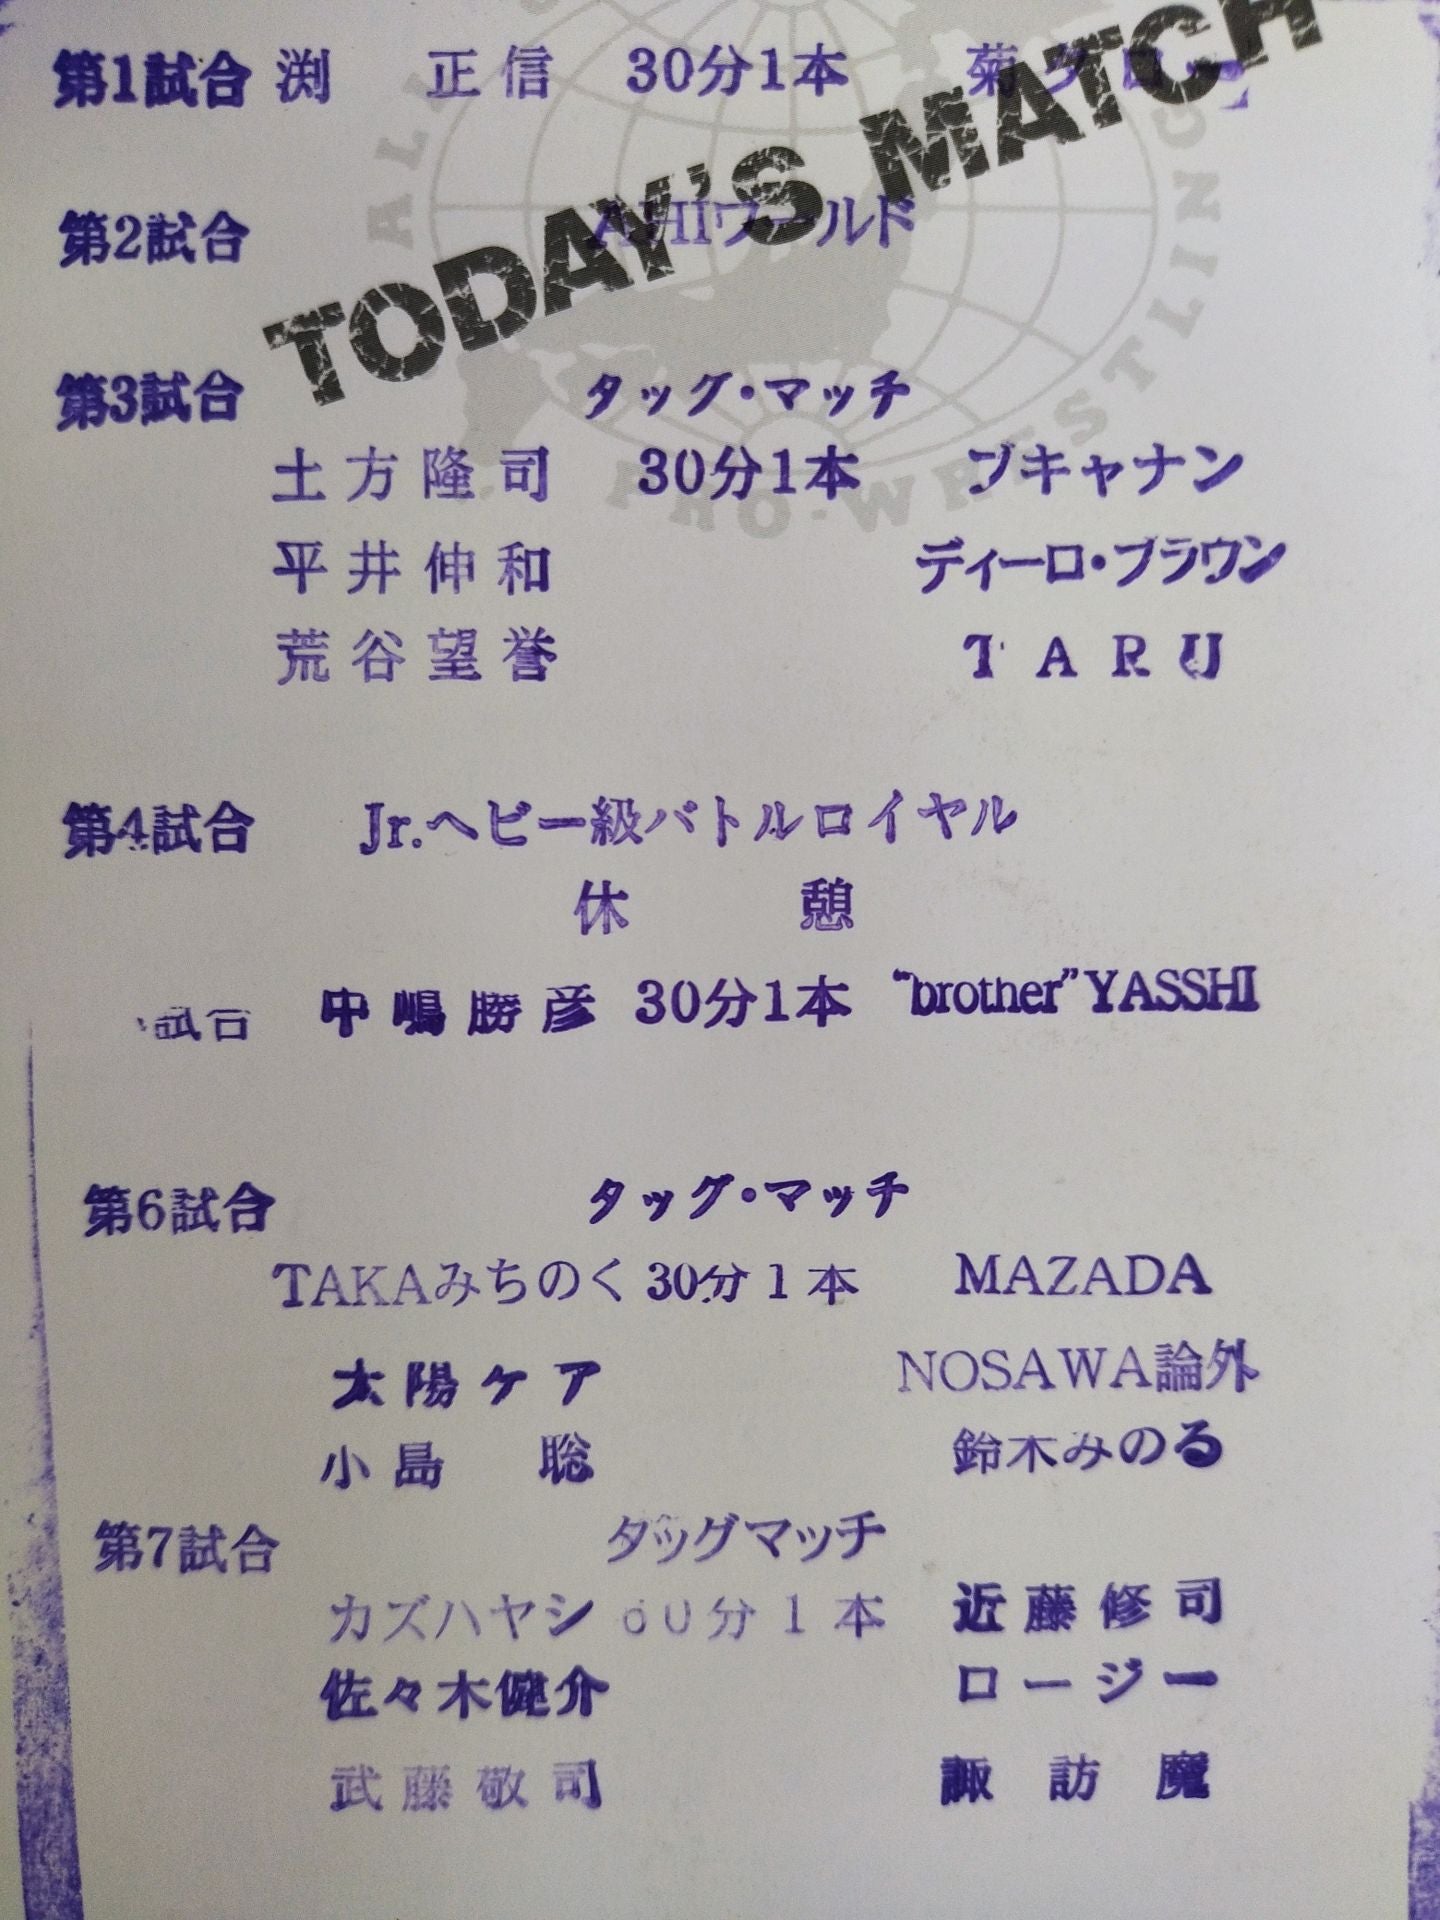 第1試合 渕 正信 30分1本 菊タロー
TODAY'S MATCH
ALL
PRO-WRESTLING
第2試合 AHIワールド
第3試合 タッグ・マッチ
土方隆司 30分1本 ブキャナン
平井伸和 ディーロ・ブラウン
荒谷望誉 TARU
第4試合 Jr.ヘビー級バトルロイヤル
休憩
試合 中嶋勝彦 30分1本 “brother”YASSHI
第6試合 タッグ・マッチ
TAKAみちのく 30分1本 MAZADA
太陽ケア NOSAWA論外
小島 聡 鈴木みのる
第7試合 タッグマッチ
カズハヤシ 分1本 近藤修司
佐々木健介 ロージー
武藤敬司 諏訪魔